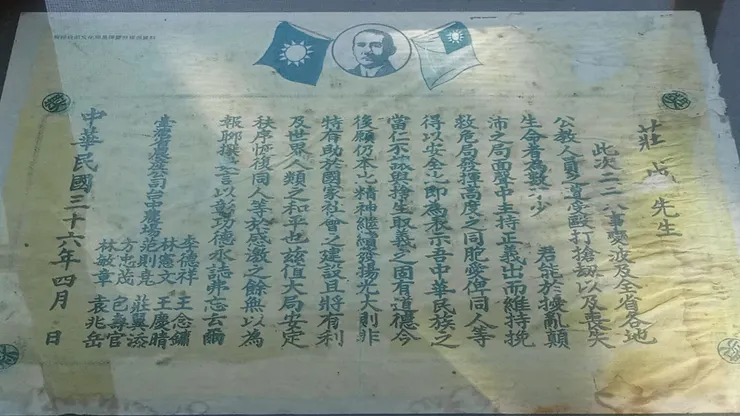 莊成先生
此次二二八事變波及全省各地
公教人員遭受毆打搶劫以及喪失
生命者為數不少 君能於擾亂顛
沛之局面羣中主持正義出而維持挽
救危局發揮高度之同胞愛俾同人等
得以安全此即為表示吾中華民族之
當仁不讓與捨生取義之固有道德今
後願仍本此精神繼續發揚光大則非
特有助於國家社會之建設且將有利
及世界人類之和平也茲值大局安定
秩序恢復同人等於感激之餘無以為
報聊撰 以彰功德永誌弗忘云爾
李德祥 王念鏽
林憲文 王慶晴
公司台中農場莊則堯 莊翼添
方忠茂 包壽官
林敏章 袁兆岳
中華民國三十六年四月 日